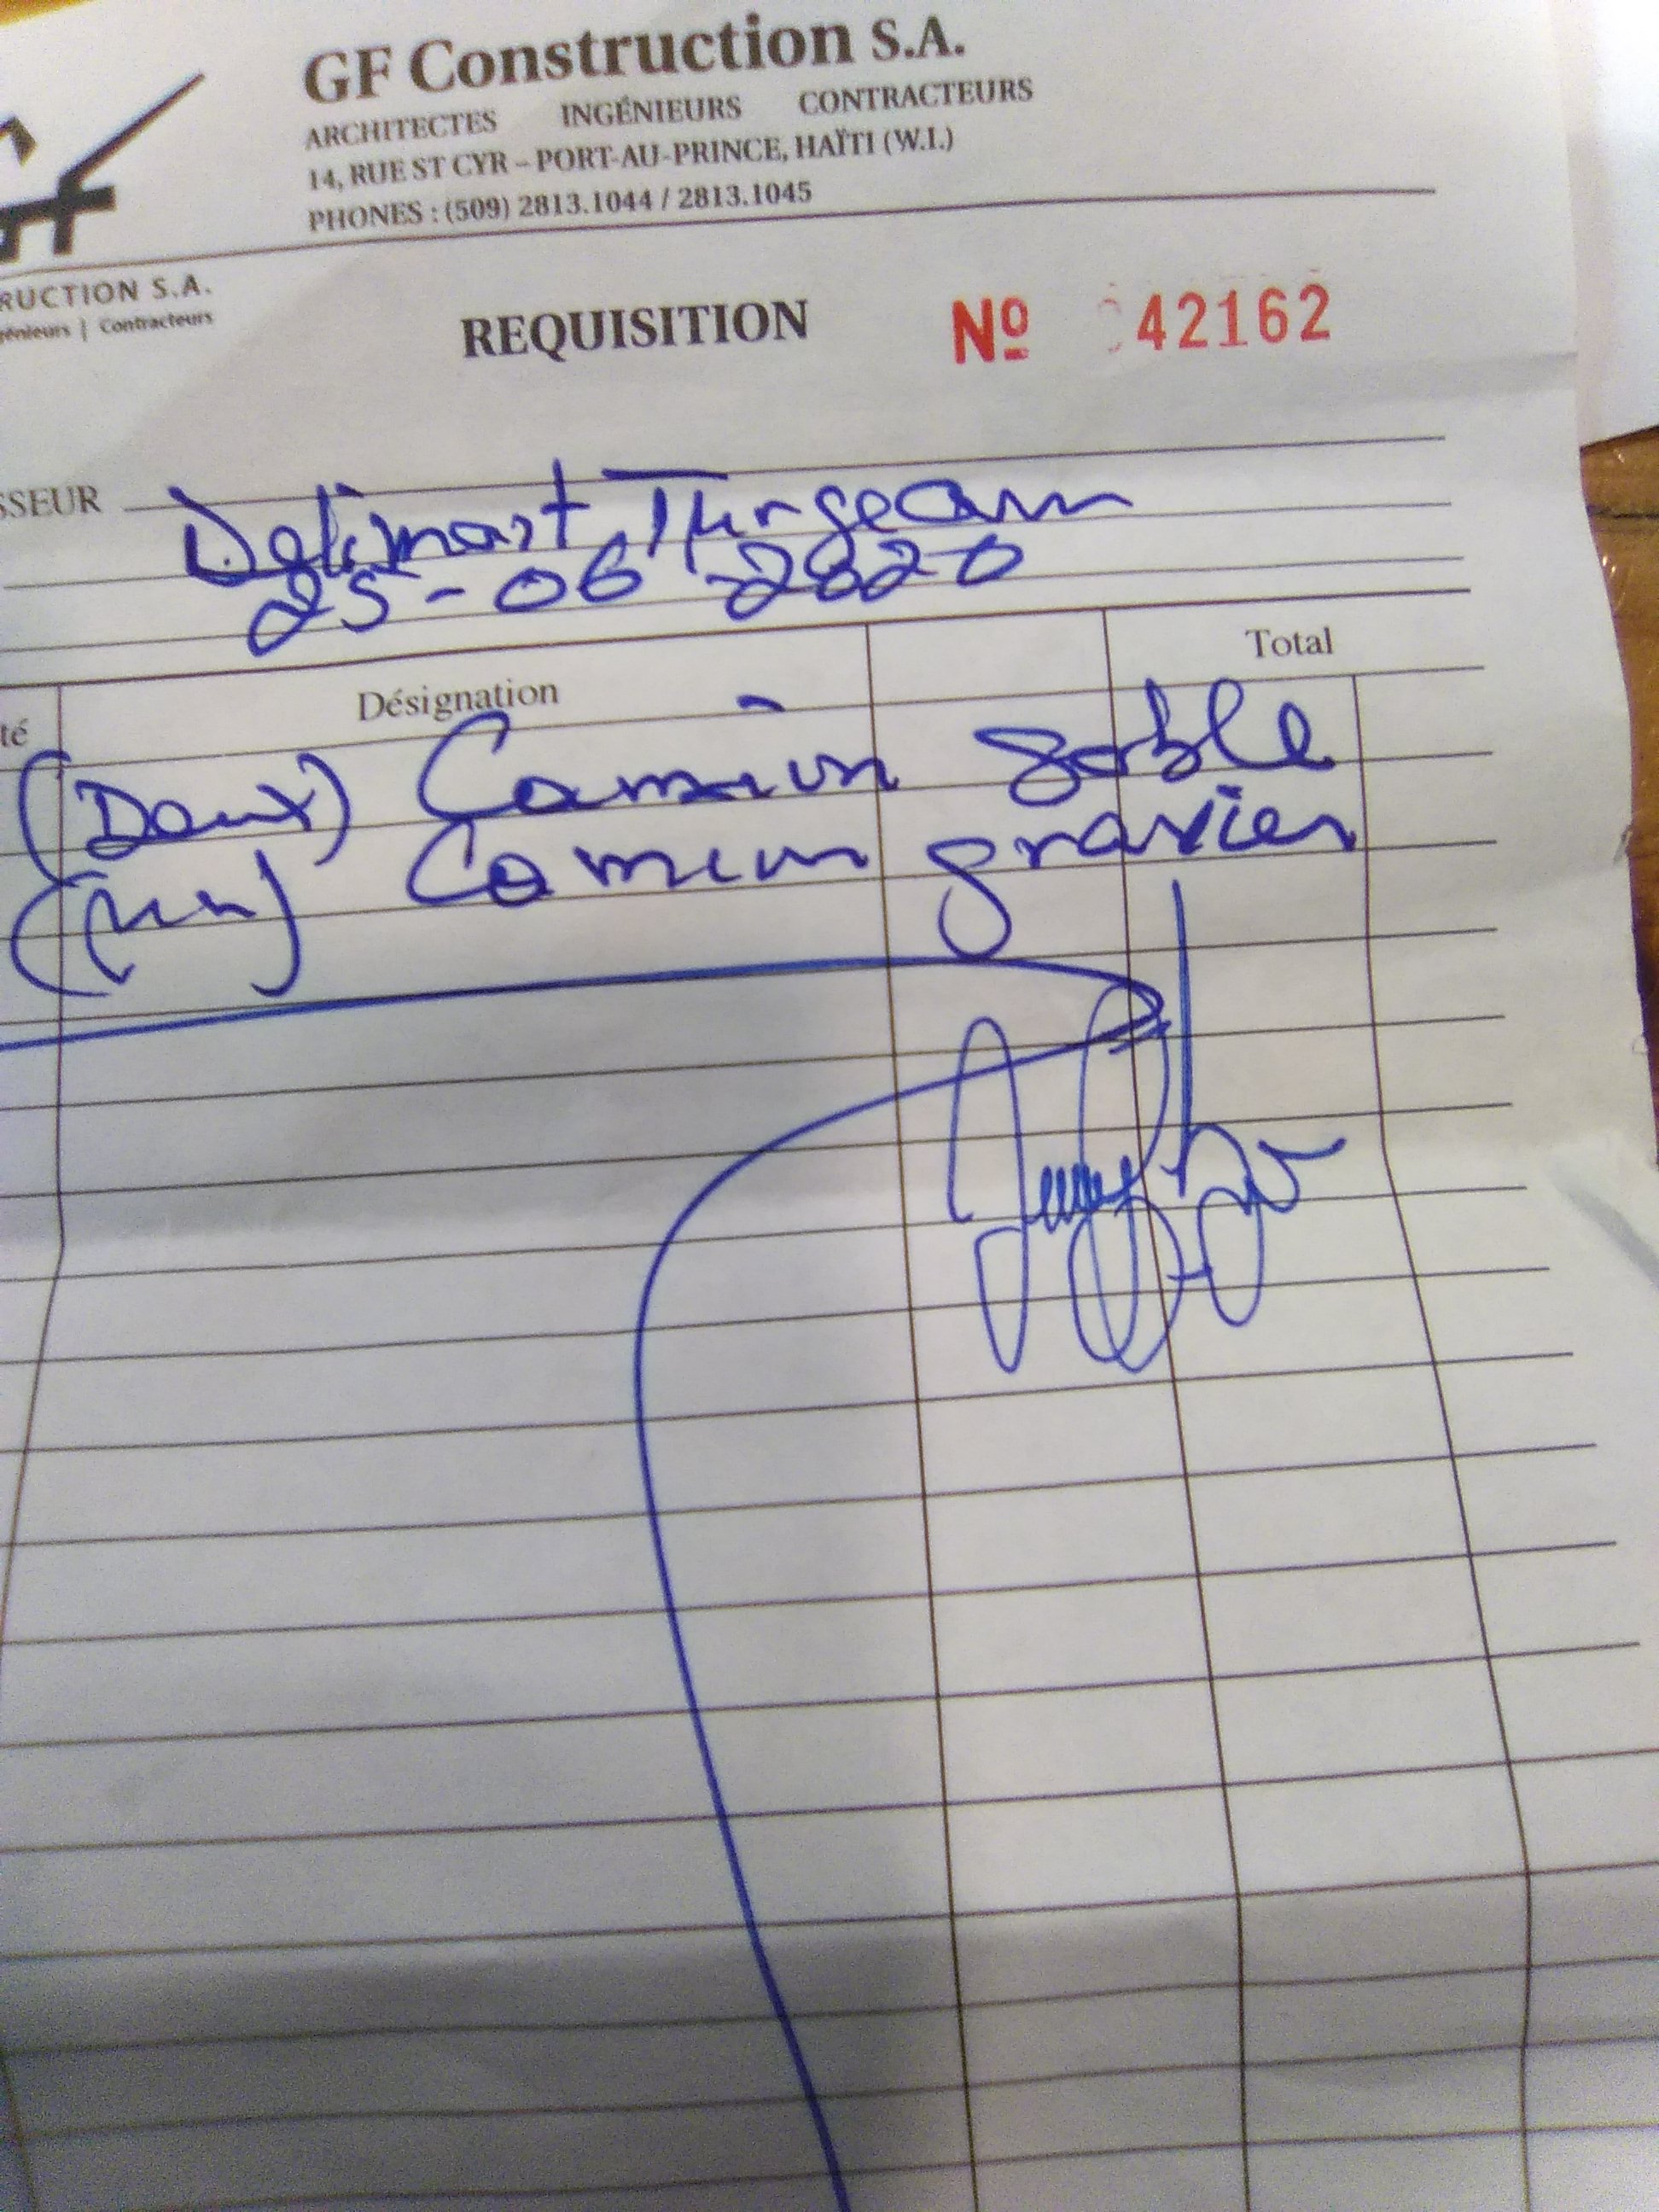 GF Construction S.A.
ARCHITECTES INGÉNIEURS CONTRACTEURS
14, RUE ST CYR – PORT-AU-PRINCE, HAÏTI (W.I.)
PHONES : (509) 2813.1044 / 2813.1045
RUCTION S.A.
génieurs | Contracteurs
REQUISITION Nº 42162
SSEUR Delimart Turgeau
25-06-2020
té Désignation Total
(Deux) Camion sable
(un) Camion gravier